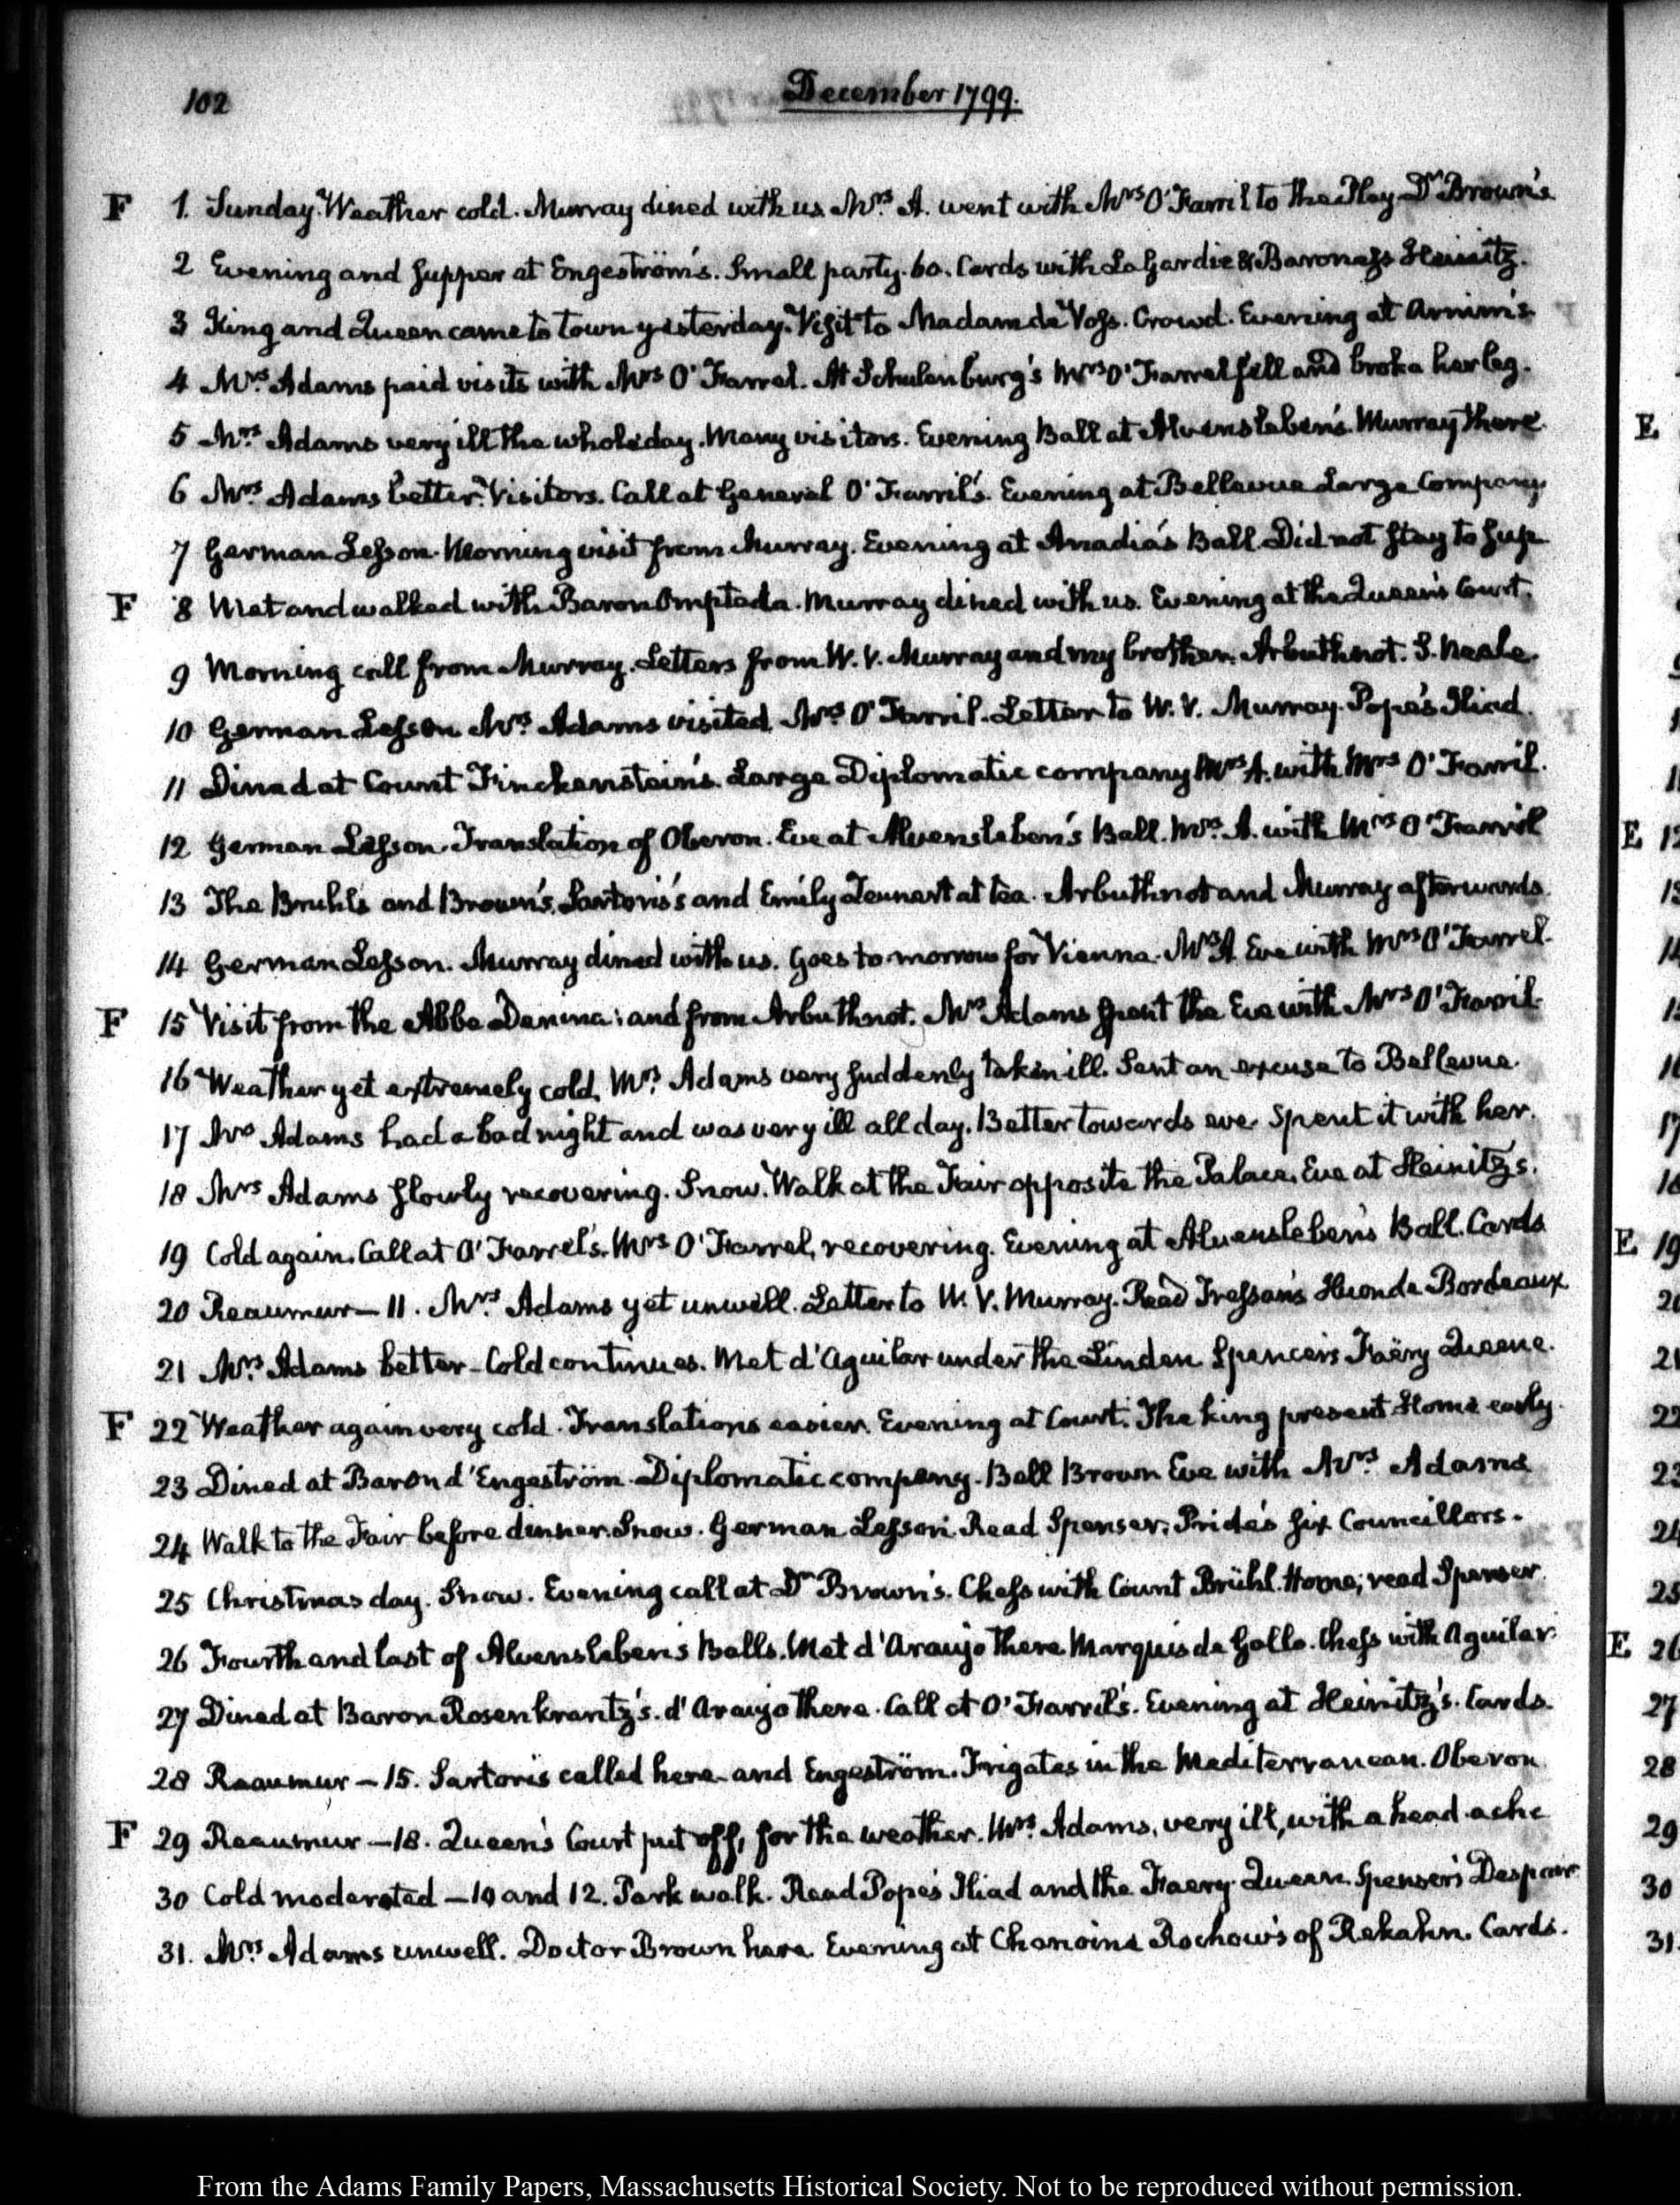 102
December 1799.
F 1. Sunday. Weather cold. Murray dined with us. Mrs. A. went with Mrs O'Farril to the Play Dr Brown's
2 Evening and supper at Engeström's. Small party. 60. Cards with LaGardie & Baroness Heinitz.
3 King and Queen came to town yesterday. Visit to Madam de Voss. Crowd. Evening at Arnim's
4 Mrs. Adams paid visits with Mrs O'Farrel. At Schulenburg's Mrs O'Farrel fell and broke her leg.
5 Mrs. Adams very ill the whole day. Many visitors. Evening Ball at Alvensleben's. Murray there.
6 Mrs Adams better. Visitors. Call at General O'Farril's. Evening at Bellevue Large Company
7 German Lesson. Morning visit from Murray. Evening at Anadia's Ball. Did not stay to sup
F 8 Met and walked with Baron Ompteda. Murray dined with us. Evening at the Queen's Court.
9 Morning call from Murray. Letters from W. V. Murray and my brother. Arbuthnot. S. Neale.
10 German Lesson. Mrs. Adams visited. Mrs. O'Farril. Letter to W. V. Murray. Pope's Iliad.
11 Dined at Count Finckenstein's. Large Diplomatic company. Mrs A. with Mrs O'Farril.
12 German Lesson. Translation of Oberon. Eve at Alvensleben's Ball. Mrs. A. with Mrs O'Farril
13 The Bruhls and Brown's. Sartoris's and Emily at tea. Arbuthnot and Murray afterwards.
14 German Lesson. Murray dined with us. Goes to-morrow for Vienna. Mrs A Eve with Mrs O'Farrel.
F 15 Visit from the Abbe Denina: and from Arbuthnot. Mrs Adams spent the Eve with Mrs O'Farril
16 Weather yet extremely cold. Mrs. Adams very suddenly taken ill. Sent an excuse to Bellevue.
17 Mrs Adams had a bad night and was very ill all day. Better towards eve. Spent it with her.
18 Mrs Adams slowly recovering. Snow. Walk at the Fair opposite the Palace. Eve at Heinitz's.
19 Cold again. Call at O'Farrel's. Mrs O'Farrel, recovering. Evening at Alvensleben's Ball. Cards
20 Reaumur — 11. Mrs. Adams yet unwell. Letter to W. V. Murray. Read Tressan's Huon de Bordeaux.
21 Mrs. Adams better — Cold continues. Met d'Aguilar under the Linden. Spencer's Faëry Queene.
F 22 Weather again very cold. Translations easier. Evening at Court. The king present. Home early.
23 Dined at Baron d'Engeström. Diplomatic company. Ball Brown Eve with Mrs. Adams
24 Walk to the Fair before dinner. Snow. German Lesson. Read Spenser, Pride's six Councillors.
25 Christmas day. Snow. Evening call at Dr Brown's. Chess with Count Brühl. Home; read Spenser.
26 Fourth and last of Alvensleben's Balls. Met d'Araujo there Marquis de Gallo. Chess with Aguilar.
27 Dined at Baron Rosenkrantz's. d'Araujo there. Call at O'Farril's. Evening at Heinitz's. Cards.
28 Reaumur — 15. Sartoris called here and Engeström. Frigates in the Mediterranean. Oberon
F 29 Reaumur — 18. Queen's Court put off, for the weather. Mrs. Adams, very ill, with a head-ache
30 Cold moderated — 10 and 12. Park walk. Read Pope's Iliad and the Faery Queen. Spenser's Despair
31. Mrs. Adams unwell. Doctor Brown here. Evening at Chanoine Rochow's of Rekahn. Cards.
From the Adams Family Papers, Massachusetts Historical Society. Not to be reproduced without permission.